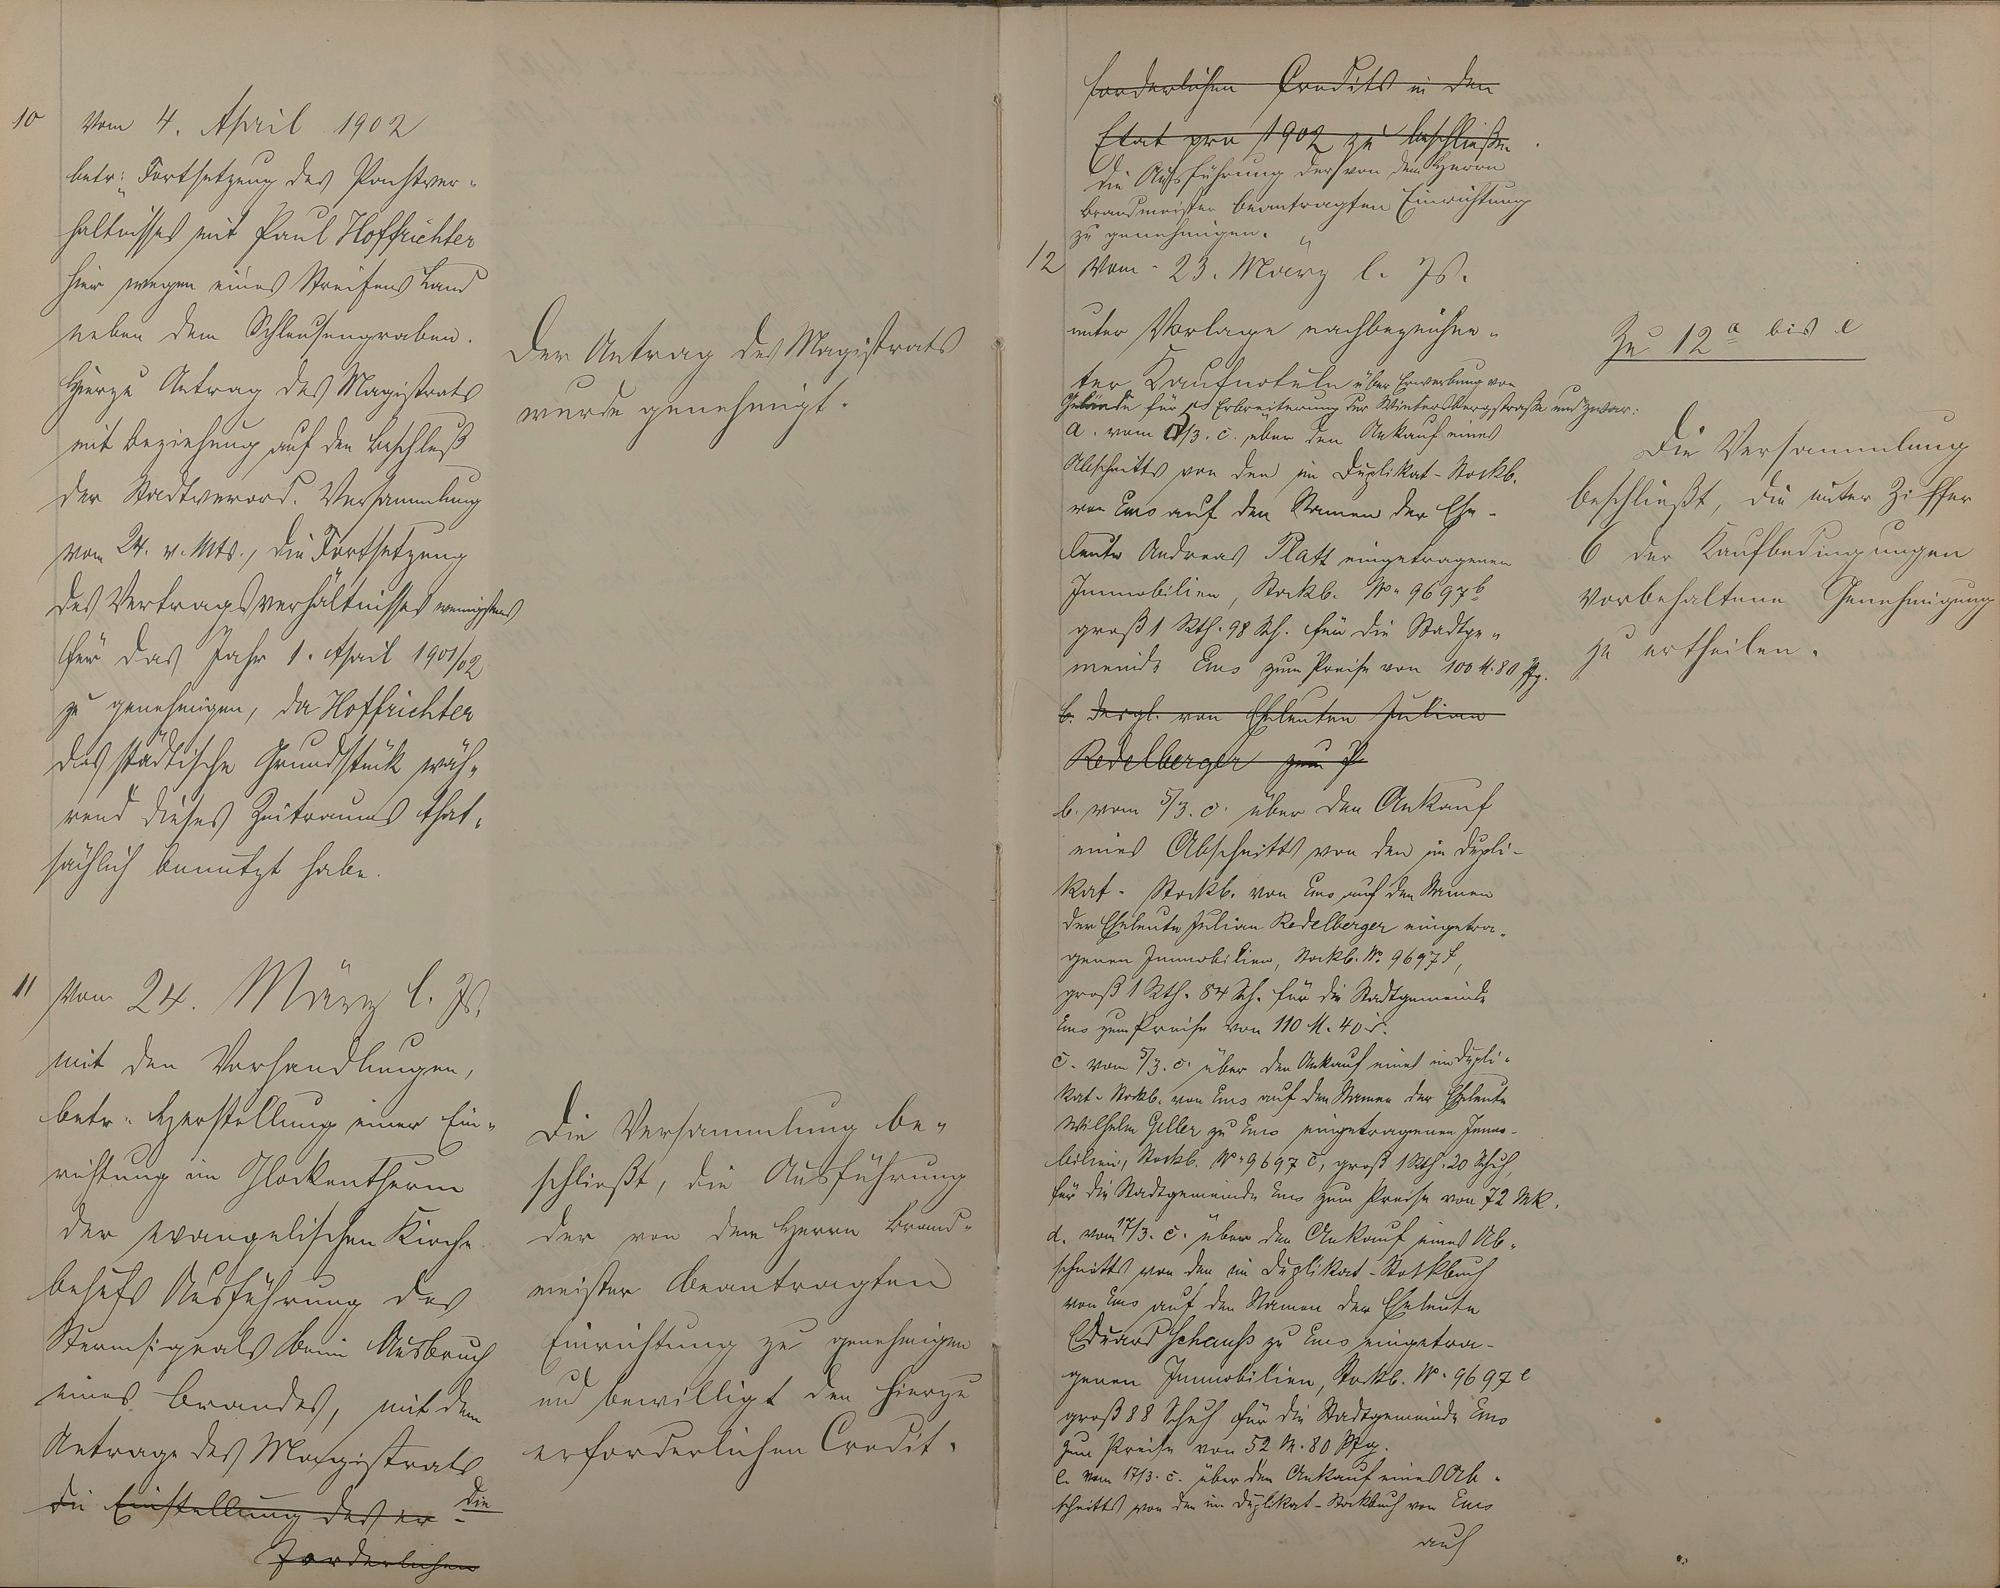 10 Vom 4. April 1902
betr: Fortsetzung des Pachtver-
hältnisses mit Paul Hoffrichter
hier wegen eines Streifens Land
neben dem Schleusengraben.
Hierzu Antrag des Magistrats
mit Beziehung auf den Beschluß
der Stadtverord. Versammlung
vom 24. v. Mts., die Fortsetzung
des Vertragsverhältnisses wenigstens
für das Jahr 1. April 1901/02
zu genehmigen, da Hoffrichter
das städtische Grundstück wäh-
rend dieses Zeitraums that-
sächlich benutzt habe.
Der Antrag des Magistrats
wurde genehmigt.
11 Vom 24. März l. Js.
mit den Verhandlungen,
betr. Herstellung einer Ein-
richtung im Glockenthurm
der evangelischen Kirche
behufs Ausführung des
Sturmsignals beim Ausbruch
eines Brandes, mit dem
Antrage des Magistrats
die Einstellung des er- die
forderlichen
Die Versammlung be-
schließt, die Ausführung
der von dem Herrn Brand-
meister beantragten
Einrichtung zu genehmigen
und bewilligt den hierzu
erforderlichen Credit.
forderlichen Credits in den
Etat pro 1902 zu beschließen.
die Ausführung der von dem Herrn
Brandmeister beantragten Einrichtung
zu genehmigen.
12 Vom 23. März l. Js.
unter Vorlage nachbezeichne-
ter Kaufnoteln über Erwerbung von
Gelände für Erbreiterung der Wintersbergstraße und zwar:
a. vom /3. c. über den Ankauf eines
Abschnitts von den im Duplikat-Stockb.
von Ems auf den Namen der Ehe-
leute Andreas Platt eingetragenen
Immobilien, Stockb. No 9697 b
groß 1 Rth. 98 Sch. für die Stadtge-
meinde Ems zum Preise von 100 M. 80 Pfg.
b. desgl. von Eheleuten Julian
Redelberger zum P
b. vom 5/3. c. über den Ankauf
eines Abschnitts von den im Dupli-
kat-Stockb. von Ems auf den Namen
der Eheleute Julian Redelberger eingetra-
genen Immobilien, Stockb. No 9697 f,
groß 1 Rth. 84 Sch. für die Stadtgemeinde
Ems zum Preise von 110 M. 40 d.
c. vom 5/3. c. über den Ankauf eines im Dupli-
kat-Stockb. von Ems auf den Namen der Eheleute
Wilhelm Geller zu Ems eingetragenen Immo-
bilien, Stockb. No 9697 c, groß 1 Rth. 20 Schuh,
für die Stadtgemeinde Ems zum Preise von 72 Mk.
d. vom 17/3. c. über den Ankauf eines Ab-
schnitts von den im Duplikat-Stockbuch
von Ems auf den Namen der Eheleute
Eduard Schauß zu Ems eingetra-
genen Immobilien, Stockb. No 9697 e
groß 88 Schuh für die Stadtgemeinde Ems
zum Preise von 52 M. 80 Pfg.
e. vom 17/3. c. über den Ankauf eines Ab-
schnitts von den im Duplikat-Stockbuch von Ems
auf
Zu 12 a bis e
Die Versammlung
beschließt, die unter Ziffer
6 der Kaufbedingungen
vorbehaltene Genehmigung
zu ertheilen.